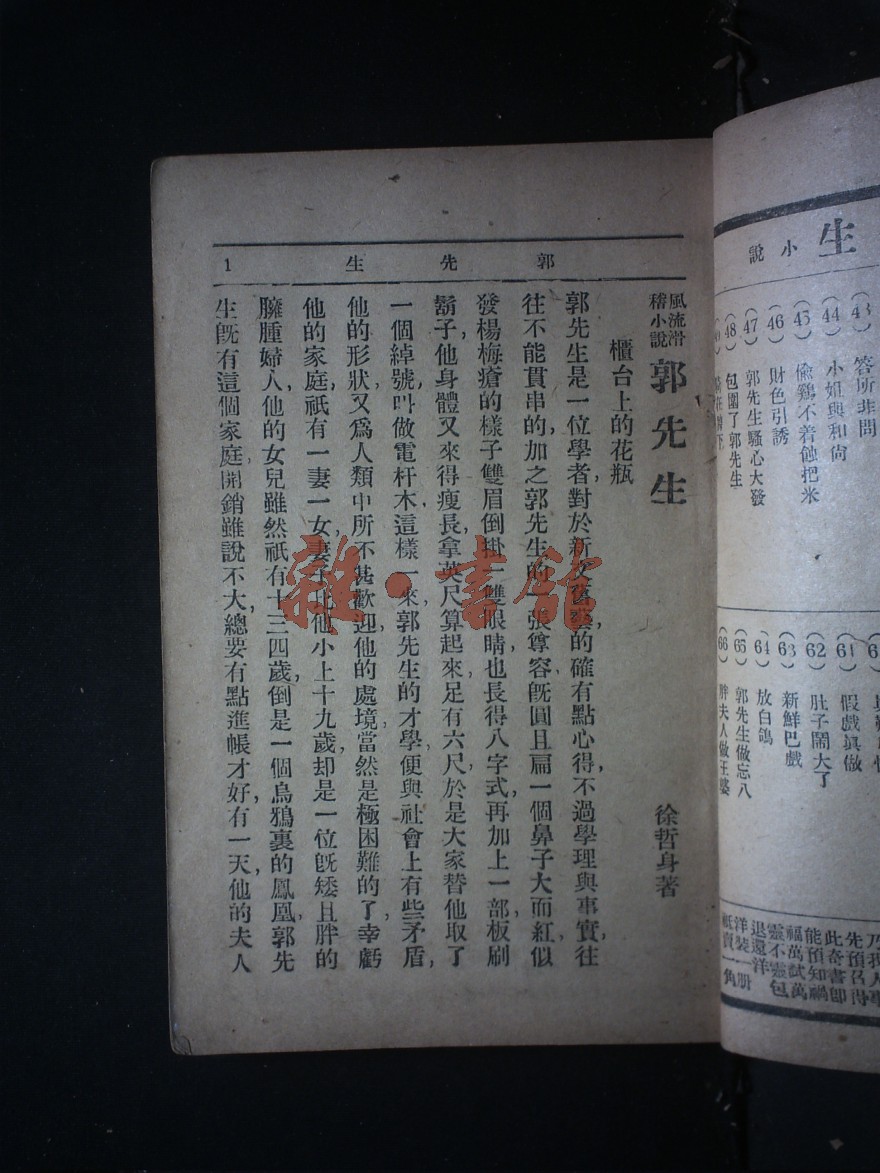 郭先生 1
風流滑
稽小說
郭先生
徐哲身著
櫃台上的花瓶
郭先生是一位學者，對於新文舊學，的確有點心得，不過學理與事實，往
往不能貫串的，加之郭先生的一張尊容，旣圓且扁，一個鼻子大而紅，似
發楊梅瘡的樣子，雙眉倒掛，一雙眼睛也長得八字式，再加上一部，板刷
鬍子，他身體又來得瘦長，拿英尺算起來，足有六尺，於是大家替他取了
一個綽號，叫做電杆木，這樣一來，郭先生的才學，便與社會上有些矛盾，
他的形狀，又爲人類中所不甚歡迎，他的處境，當然是極困難的了，幸虧
他的家庭，祇有一妻一女，妻子比他小上十九歲，却是一位旣矮且胖的
臃腫婦人，他的女兒雖然祇有十三四歲，倒是一個烏鴉裏的鳳凰，郭先
生旣有這個家庭，開銷雖說不大，總要有點進帳才好，有一天，他的夫人
生小說
(43) 答所非問
(44) 小姐與和尙
(45) 偸鷄不着蝕把米
(46) 財色引誘
(47) 郭先生騷心大發
(48) 包圍了郭先生
假戲眞做
(62) 肚子鬧大了
(63) 新鮮巴戲
(64) 放白鴿
(65) 郭先生做忘八
(66) 胖夫人做王婆
先預
此奇書卽
能預知禍
福萬試萬
靈不靈包
退還洋
洋裝一册
祇賣一角
雜·書館